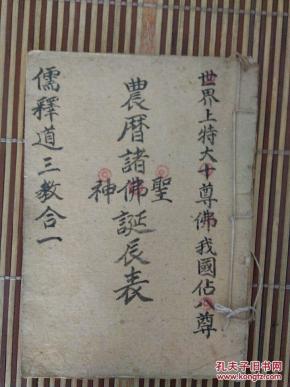 世界上特大十尊佛我國佔八尊
農曆諸佛誕辰表
聖
神
儒釋道三教合一
孔夫子旧书网